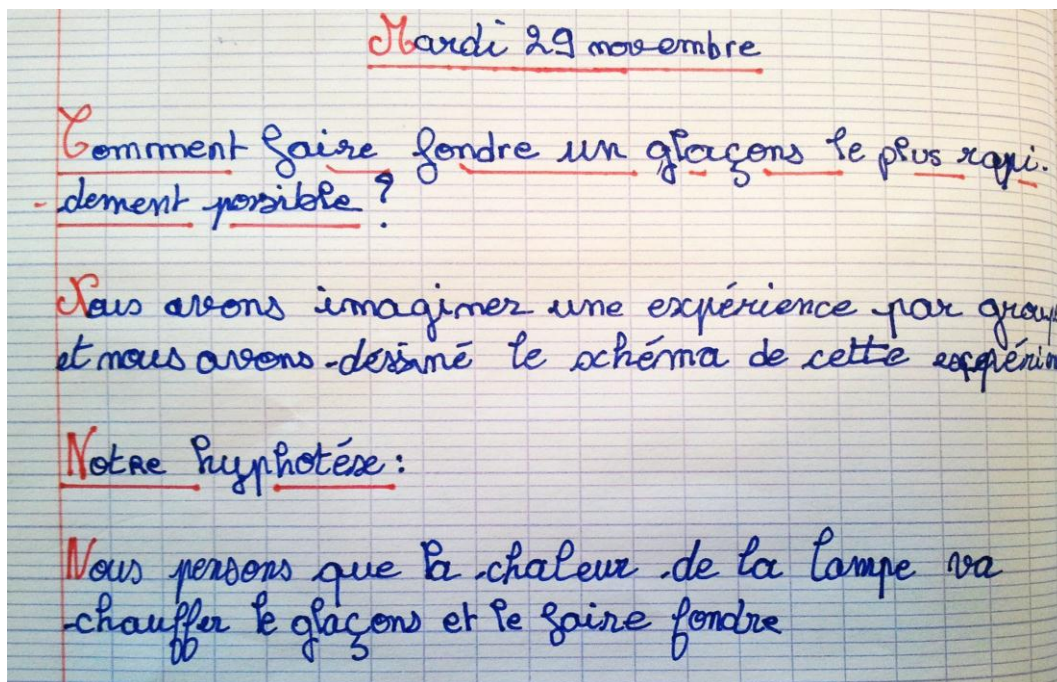 Mardi 29 novembre
Comment faire fondre un glaçons le plus rapi-
-dement possible ?
Nous avons imaginer une expérience par group
et nous avons dessiné le schéma de cette expérien
Notre hyphotése :
Nous pensons que la chaleur de la lampe va
chauffer le glaçons et le faire fondre